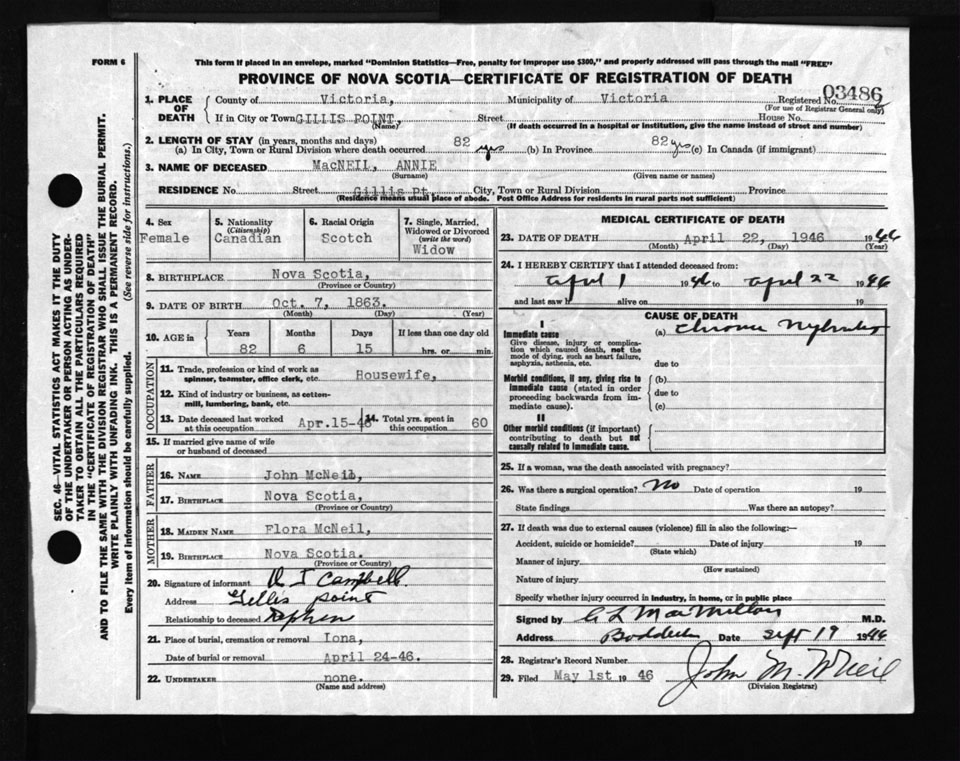 FORM 6
This form if placed in an envelope, marked "Dominion Statistics—Free, penalty for improper use $300," and properly addressed will pass through the mail "FREE"
PROVINCE OF NOVA SCOTIA—CERTIFICATE OF REGISTRATION OF DEATH
SEC. 46—VITAL STATISTICS ACT MAKES IT THE DUTY
OF THE UNDERTAKER OR PERSON ACTING AS UNDER-
TAKER TO OBTAIN ALL THE PARTICULARS REQUIRED
IN THE "CERTIFICATE OF REGISTRATION OF DEATH"
AND TO FILE THE SAME WITH THE DIVISION REGISTRAR WHO SHALL ISSUE THE BURIAL PERMIT.
WRITE PLAINLY WITH UNFADING INK. THIS IS A PERMANENT RECORD.
Every item of Information should be carefully supplied. (See reverse side for instructions.)
1. PLACE OF DEATH County of Victoria, Municipality of Victoria Registered No. 03486
(For use of Registrar General only)
If in City or Town GILLIS POINT, Street House No.
(Name) (If death occurred in a hospital or institution, give the name instead of street and number)
2. LENGTH OF STAY (in years, months and days)
(a) In City, Town or Rural Division where death occurred 82 yrs (b) In Province 82 yrs (c) In Canada (if immigrant)
3. NAME OF DECEASED MacNEIL, ANNIE
(Surname) (Given name or names)
RESIDENCE No. Street Gillis Pt. City, Town or Rural Division Province
(Residence means usual place of abode. Post Office Address for residents in rural parts not sufficient)
4. Sex Female
5. Nationality (Citizenship) Canadian
6. Racial Origin Scotch
7. Single, Married, Widowed or Divorced (write the word) Widow
8. BIRTHPLACE Nova Scotia,
(Province or Country)
9. DATE OF BIRTH Oct. 7, 1863.
(Month) (Day) (Year)
10. AGE in Years Months Days If less than one day old
82 6 15 hrs. or min.
OCCUPATION
11. Trade, profession or kind of work as spinner, teamster, office clerk, etc. Housewife,
12. Kind of industry or business, as cotton-mill, lumbering, bank, etc.
13. Date deceased last worked at this occupation Apr.15-46 14. Total yrs. spent in this occupation 60
15. If married give name of wife or husband of deceased
FATHER
16. NAME John McNeil,
17. BIRTHPLACE Nova Scotia,
(Province or Country)
MOTHER
18. MAIDEN NAME Flora McNeil,
19. BIRTHPLACE Nova Scotia.
(Province or Country)
20. Signature of informant Campbell
Address Gillis point
Relationship to deceased Nephew
21. Place of burial, cremation or removal Iona,
Date of burial or removal April 24-46.
22. UNDERTAKER none.
(Name and address)
MEDICAL CERTIFICATE OF DEATH
23. DATE OF DEATH April 22, 1946 1946
(Month) (Day) (Year)
24. I HEREBY CERTIFY that I attended deceased from:
April 1 1946 to April 22 1946
and last saw h alive on 19
CAUSE OF DEATH
I
Immediate cause (a) Chronic Nephritis
Give disease, injury or complica-
tion which caused death, not the
mode of dying, such as heart failure,
asphyxia, asthenia, etc. due to
Morbid conditions, if any, giving rise to (b)
immediate cause (stated in order due to
proceeding backwards from im-
mediate cause). (c)
II
Other morbid conditions (if important)
contributing to death but not
causally related to immediate cause.
25. If a woman, was the death associated with pregnancy?
26. Was there a surgical operation? No Date of operation 19
State findings Was there an autopsy?
27. If death was due to external causes (violence) fill in also the following:—
Accident, suicide or homicide? Date of injury 19
(State which)
Manner of injury
(How sustained)
Nature of injury
Specify whether injury occurred in industry, in home, or in public place
Signed by C L MacMillan M.D.
Address Baddeck Date Sept 19 1946
28. Registrar's Record Number
29. Filed May 1st 19 46 John M. McNeil
(Division Registrar)